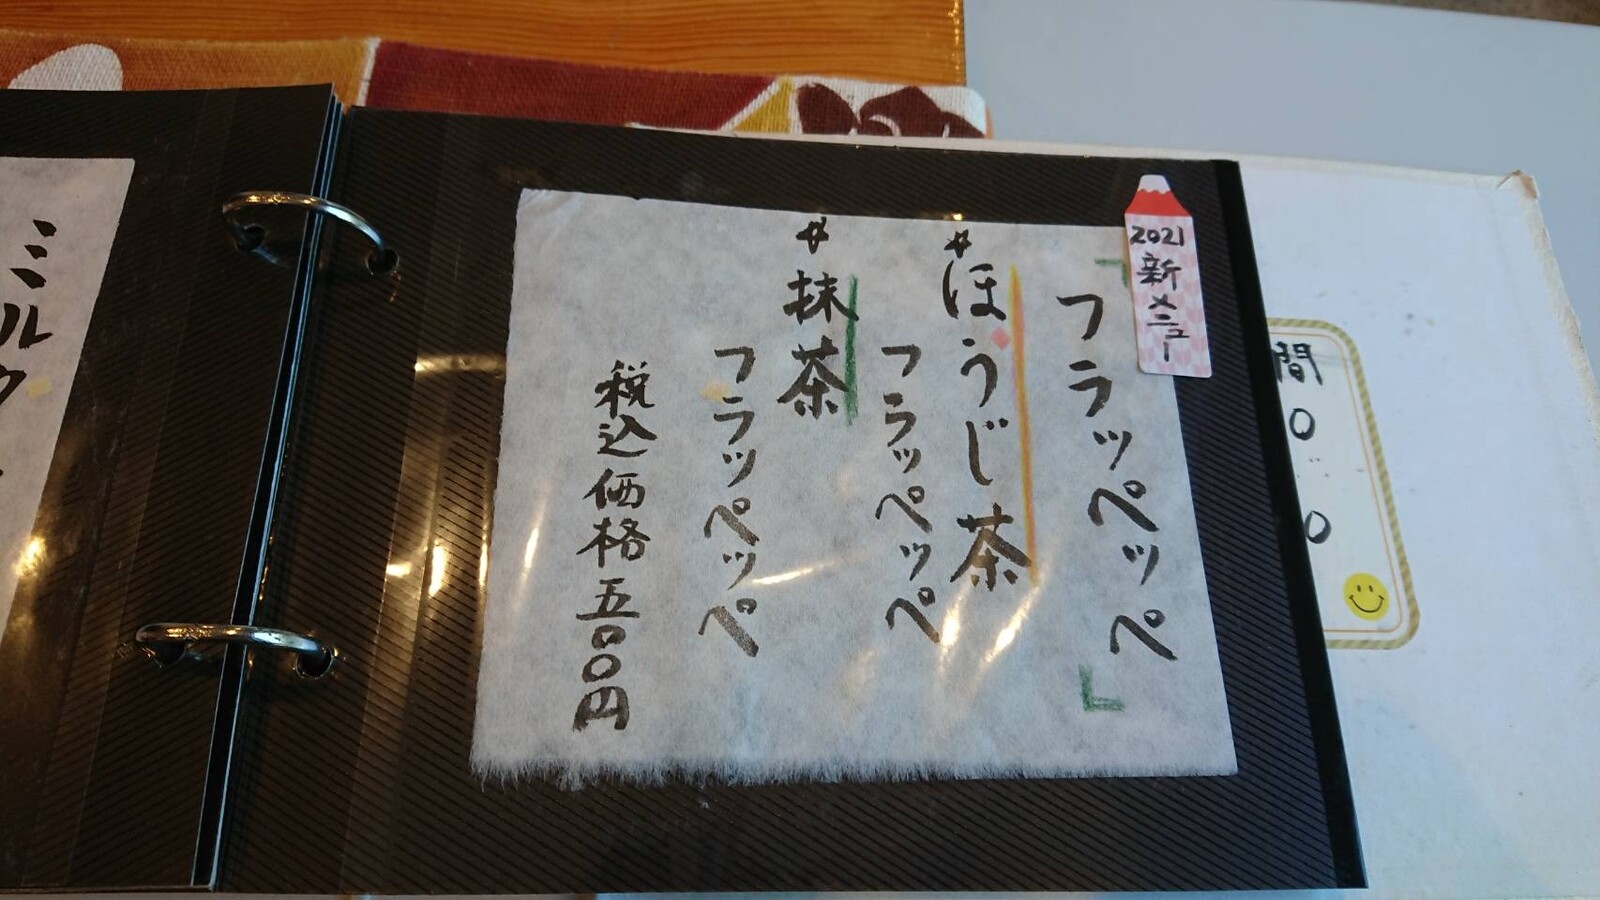 2021
新メニュー
「フラッペッペ」
*ほうじ茶
フラッペッペ
*抹茶
フラッペッペ
税込価格五〇〇円
ミルク
間